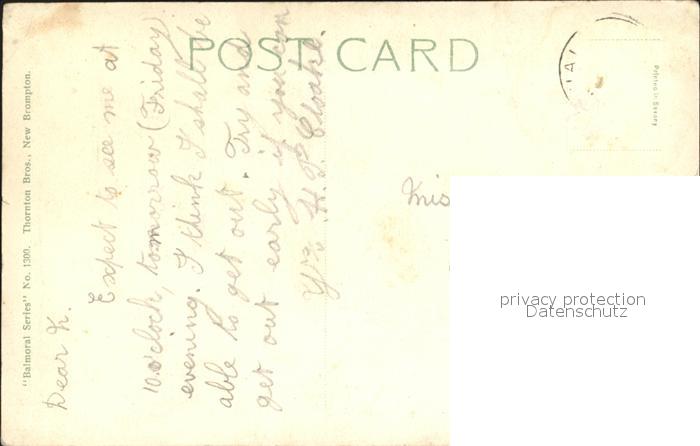 POST CARD
"Balmoral Series" No. 1300. Thornton Bros., New Brompton.
Dear K.
Expect to see me at
10.o'clock, tomorrow (Friday)
evening. I think I shall be
able to get out. Try and
get out early if you can
Yrs. H. P. Cloake.
Miss
Printed in Saxony
privacy protection
Datenschutz